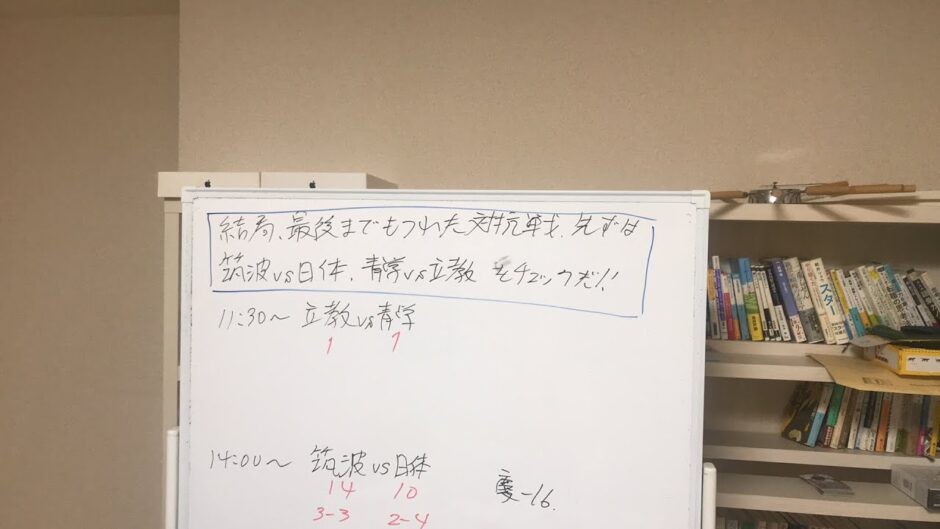 結局、最後までもつれた対抗戦、先ずは
筑波vs日体、青学vs立教をチェックだ!!
11:30〜 立教vs青学
1 7
14:00〜 筑波vs日体
14 10
3-3 2-4
慶-16.
スター